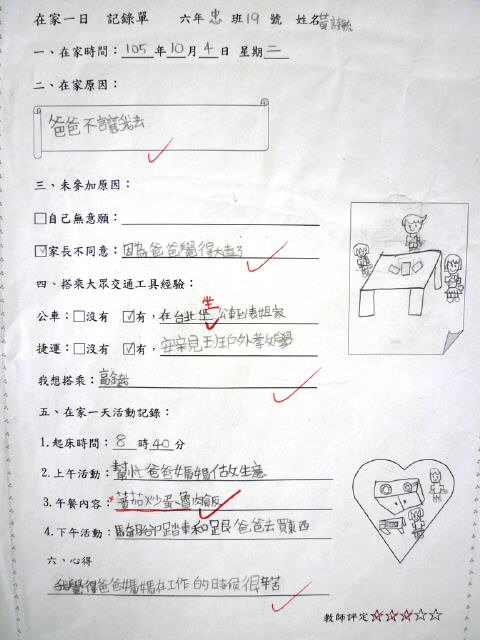 在家一日 記錄單 六年 忠 班 19 號 姓名 黃詩
一、在家時間：105 年 10 月 4 日 星期 二
二、在家原因：
爸爸不讓我去
三、未參加原因：
□自己無意願：
☑家長不同意：因為爸爸覺得太遠了
四、搭乘大眾交通工具經驗：
坐
公車：□沒有 ☑有，在台北坐公車到表姐家
捷運：□沒有 ☑有，戶外教學
我想搭乘：高鐵
五、在家一天活動記錄：
1.起床時間：8 時 40 分
2.上午活動：幫忙爸爸媽媽做生意
3.午餐內容：蕃茄炒蛋、魯肉飯
4.下午活動：騎腳踏車和跟爸爸去買東西
六、心得
我覺得爸爸媽媽在工作的時候很辛苦
教師評定☆☆☆☆☆